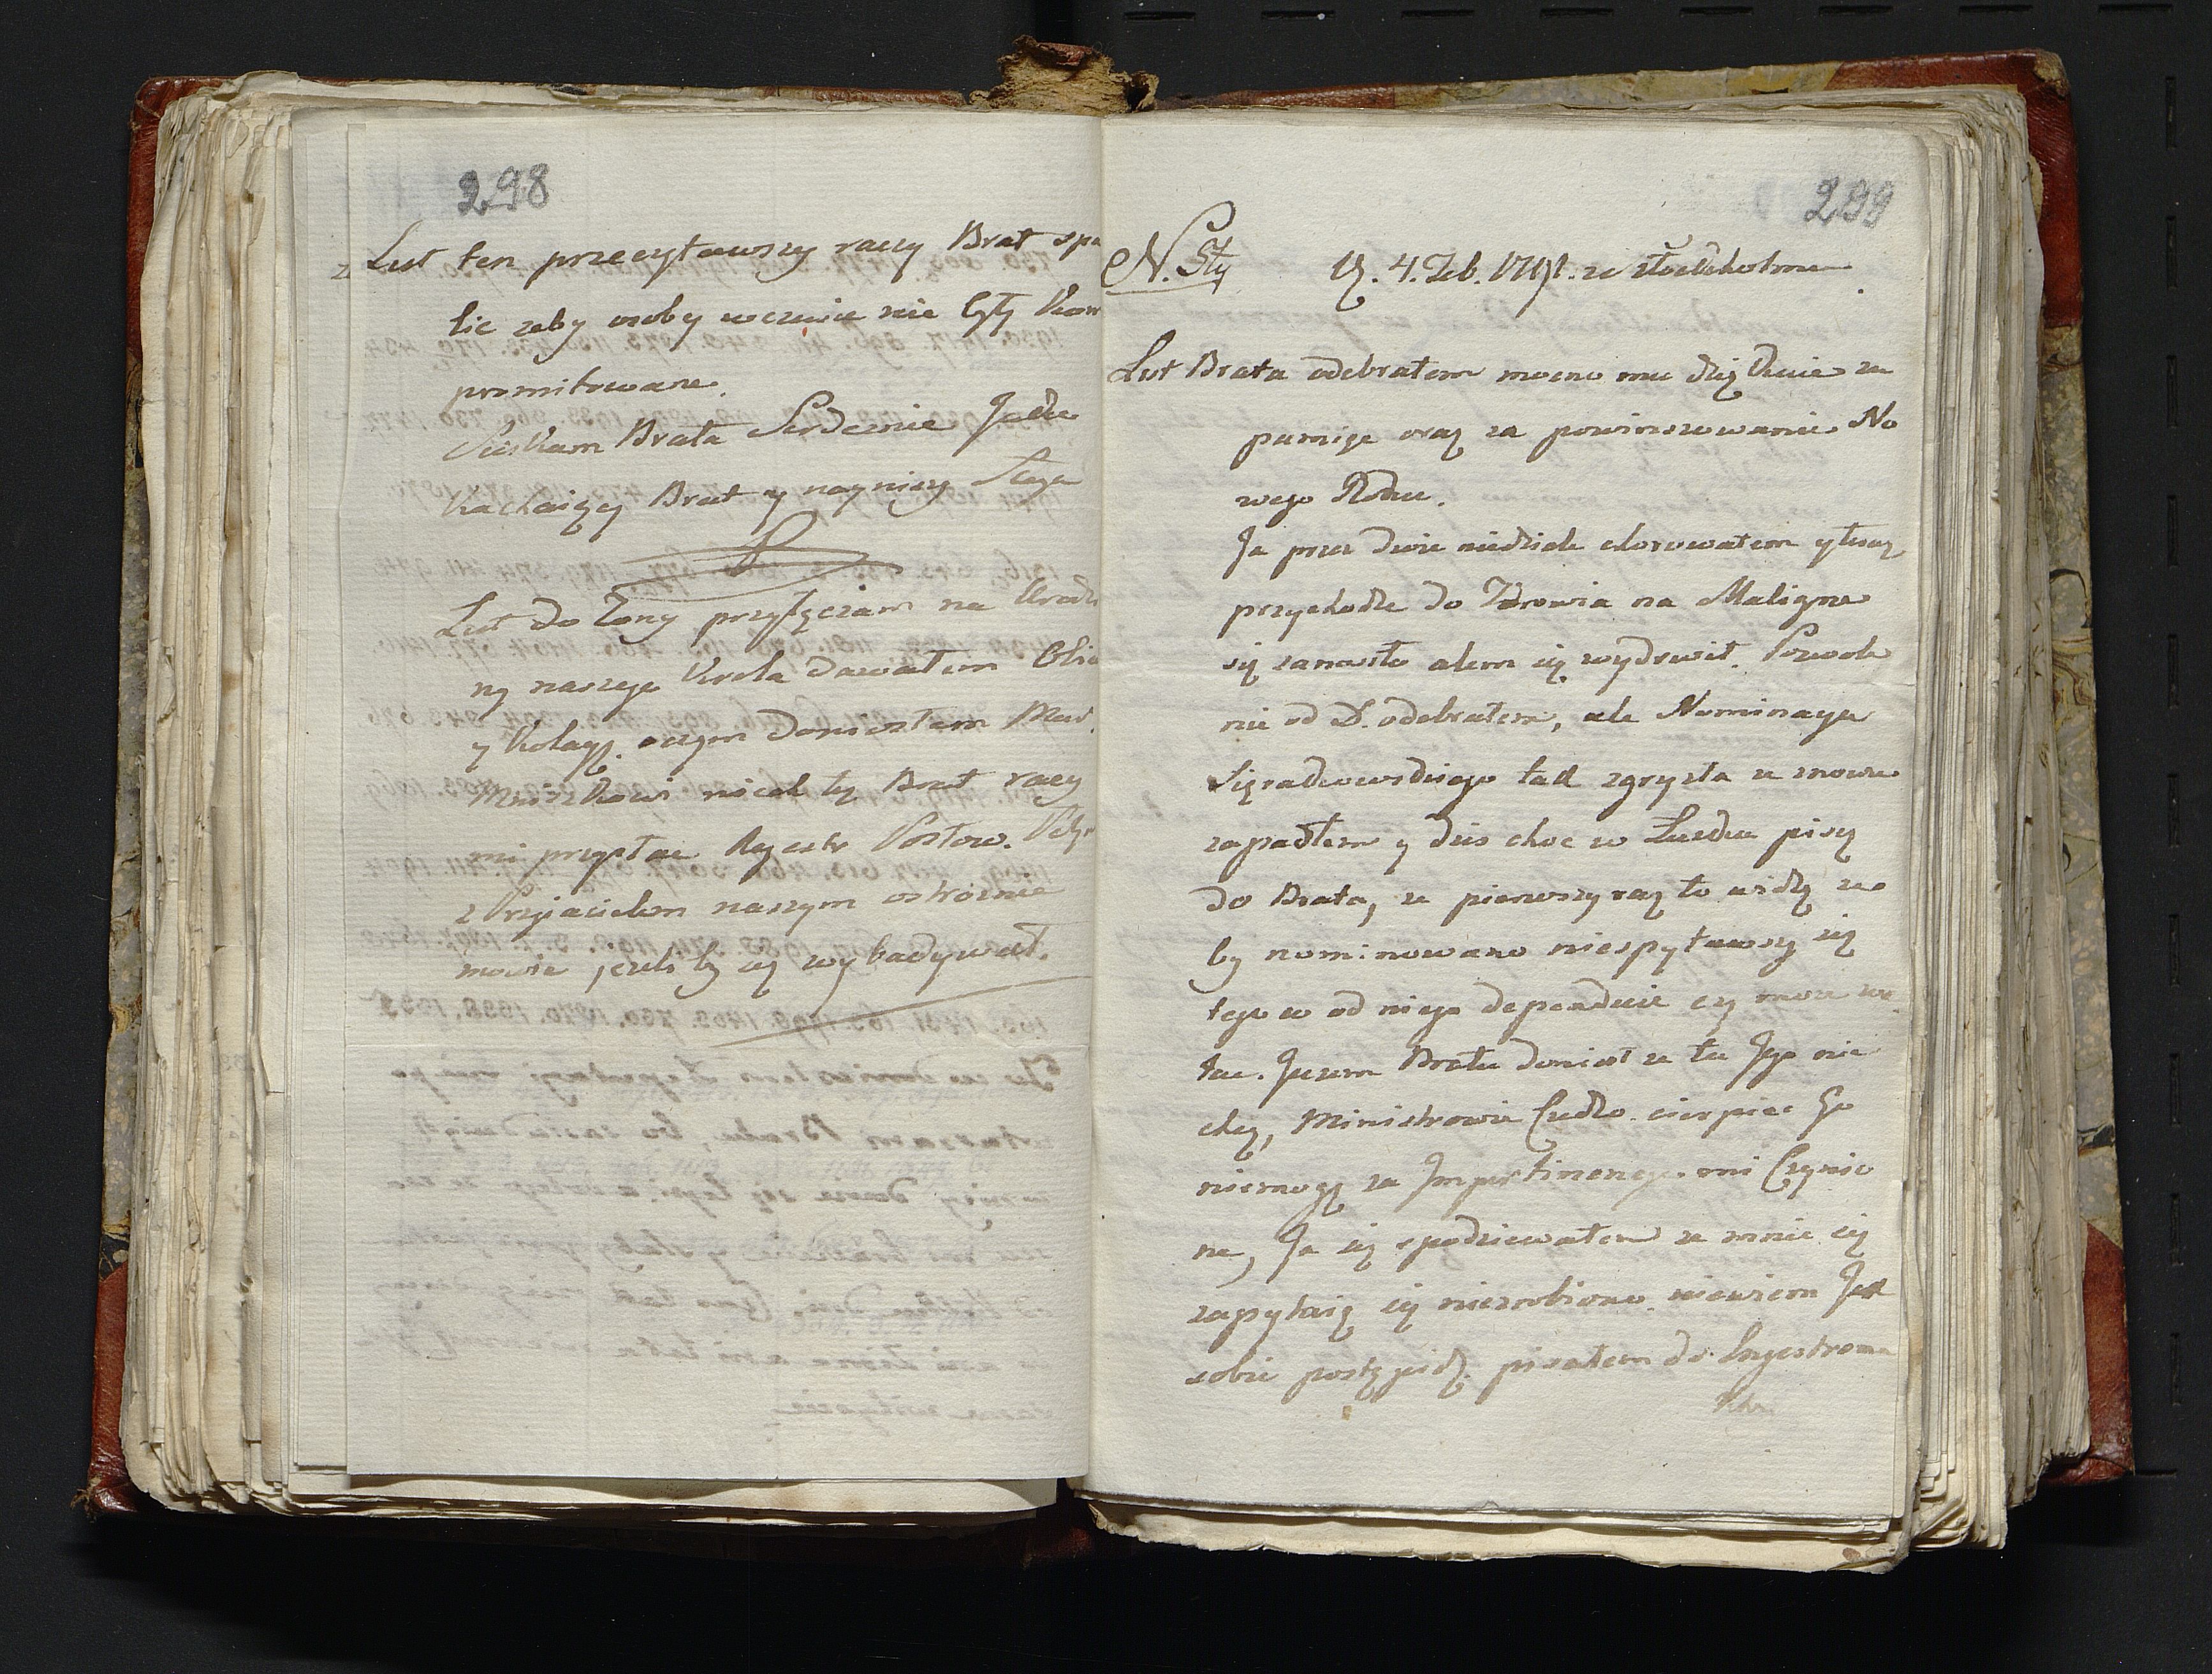 298
List ten przeczytawszy raczy Brat spa
lic zeby osoby wczesnie nie były kom
promitowane.
Sciskam Brata Serdecznie Jako
Kochaiący Brat y nayniszy Sługa
List do Zony przyłączam na Urodzi
ny naszego Krola dawałem Obia
y Kolacyą. oczym doniosłem Mar.
niech by Brat raczy
mi przysłac Regestr Posłow.
z Przyiacielem naszym ostroznie
mowic jezeli by się wybadywał.
299
N. 5ty
D. 4. Feb. 1791. ze Stockholmu
List Brata odebrałem mocno mu dziękuie za
pamięc oraz za powinszowanie No
wego Roku.
Ja przez dwie niedziele chorowałem y teraz
przychodze do Zdrowia na Maligne
się zanosło alem się wydrwił. Pozwole
nie od D. odebrałem, ale Nominacya
Sięrakowskiego tak zgryzła ze znowu
zapadłem y dzis choc w Łuzku piszę
do Brata, ze pierwszy raz to widzę ze
by nominowano niespytawszy się
tego co od niego dependuie czy moze zo
stac. Juzem Bratu doniosł ze tu Jego nie
chcą, Ministrowie Cudzo. cierpiec Go
niemogą za Impertinencye. mi Czynio
ne, Ja się spodziewałem ze mnie się
zapytaią się niezrobiono. niewiem Jak
sobie postąpią. pisałem do Engestroma